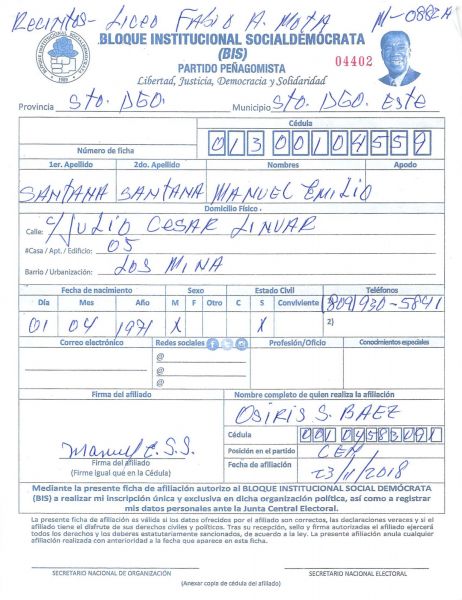 Recintos- Liceo Fabio A. Mota M-0882A
BLOQUE INSTITUCIONAL SOCIALDEMÓCRATA
(BIS)
04402
PARTIDO PEÑAGOMISTA
Libertad, Justicia, Democracia y Solidaridad
Provincia Sto. DGO. Municipio Sto. DGO. Este
Cédula
Número de ficha 01300104559
1er. Apellido 2do. Apellido Nombres Apodo
SANTANA SANTANA MANUEL EMILIO
Domicilio Físico
Calle: C/ JULIO CESAR LINVAR
#Casa / Apt. / Edificio: 05
Barrio / Urbanización: LOS MINA
Fecha de nacimiento Sexo Estado Civil Teléfonos
Día Mes Año M F Otro C S Conviviente 1) 809 930-5841
01 04 1971 X X 2)
Correo electrónico Redes sociales Profesión/Oficio Conocimientos especiales
@
@
@
Firma del afiliado Nombre completo de quien realiza la afiliación
OSIRIS S. BAEZ
Cédula
Manuel E. S. S.
Firma del afiliado
(Firme igual que en la Cédula)
Posición en el partido CEM
Fecha de afiliación 23/11/2018
Mediante la presente ficha de afiliación autorizo al BLOQUE INSTITUCIONAL SOCIAL DEMÓCRATA
(BIS) a realizar mi inscripción única y exclusiva en dicha organización política, así como a registrar
mis datos personales ante la Junta Central Electoral.
La presente ficha de afiliación es válida si los datos ofrecidos por el afiliado son correctos, las declaraciones veraces y si el
afiliado tiene el disfrute de sus derechos civiles y políticos. Tras su recepción, sello y firma autorizadas el afiliado ejercerá
todos los derechos y los deberes estatutariamente sancionados, de acuerdo a la ley. La presente afiliación anula cualquier
afiliación realizada con anterioridad a la fecha que aparece en esta ficha.
SECRETARIO NACIONAL DE ORGANIZACIÓN SECRETARIO NACIONAL ELECTORAL
(Anexar copia de cédula del afiliado)